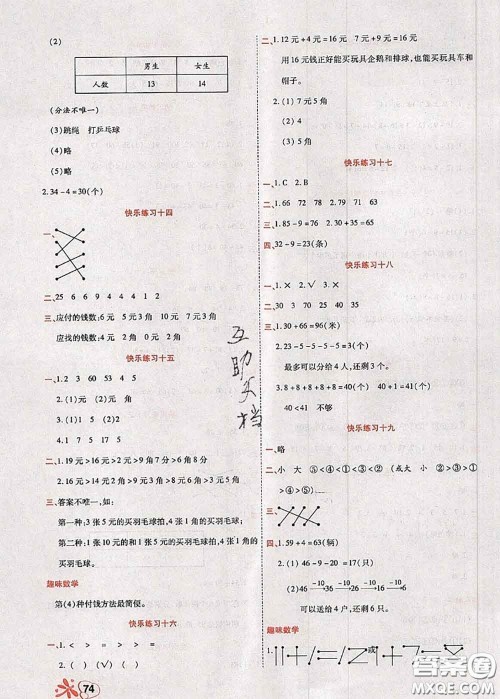 (2)
男生 女生
人数 13 14
(分法不唯一)
(3)跳绳 打乒乓球
(4)略
(5)略
2.34-4=30(个)
快乐练习十四
一、
二、25 6 6 9 4 4 4 1 2
三、应付的钱数:6元 5元3角 10元 7元7角
应找的钱数:4元 2角 0元 2角
快乐练习十五
一、1.2 3 60 53 4 5
2.(1)(2)元 角
3.(1)5 (2)2
4.1 7 5 17
二、1.19元>16元>2元>9角>7分>1分
2.16元>2元>9角>7角>6角>5角
三、答案不唯一,如:
第一种:3张5元的买羽毛球拍,4张1角的买羽毛球;
第二种:1张10元的和1张5元的买羽毛球拍,4张1角的买羽毛球。
趣味数学
第(4)种付钱方法最简便。
快乐练习十六
一、1.< > = > > =
2.( ) √ ( ) ( )
74
二、1.12元+4元=16元 7元+9元=16元
用16元钱正好能买玩具企鹅和排球,也能买玩具车和
帽子。
2.(1)7元5角
(2)2元8角
快乐练习十七
一、1.C 2.B
二、1.66 72 78 2.79 71 63
三、1.85-9=76 2.30+35=65
四、32-9=23(条)
快乐练习十八
一、1.× 2.√ 3.×
二、30 3 70 25 40
三、1.30+66=96(米)
2.23-5-5-5-5=3(个)
最多可以分给4人,还剩3个。
3.8+8+8+8+8=40(个) 40+1=41(个)
40<41 不够
快乐练习十九
一、略
二、小 大 ⑤<④<①<③<② (或大 小 ②>③>①
>④>⑤)
三、
四、1.59+4=63(辆)
2.(1)46-20-9=17(只)
(2)46 -10→ 36 -10→ 26 -10→ 16 -10→ 6
可以送给4户,还剩6只。
趣味数学
1.
或
互助文档
答案圈
MXQE.COM